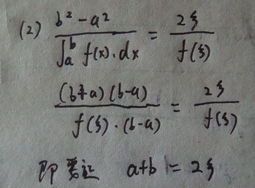 (2) \frac{b^2-a^2}{\int_a^b f(x)·dx} = \frac{2ξ}{f(ξ)}
\frac{(b+a)(b-a)}{f(ξ)·(b-a)} = \frac{2ξ}{f(ξ)}
即要证 a+b = 2ξ